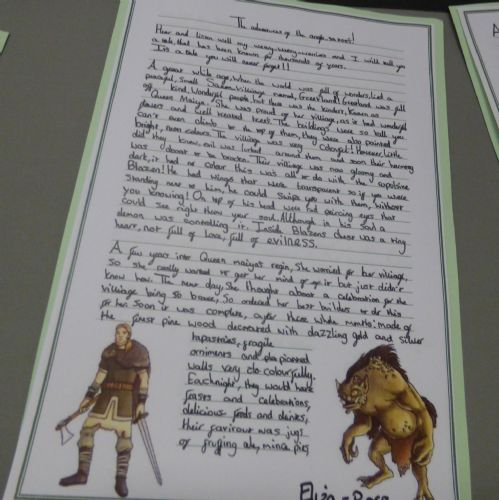 The adventures of the anglo-saxons!
Hear and listen well my weary-worny-worriers and I will tell you
a tale, that has been known for thousands of years.
It is a tale you will never forget!!
A great while ago, When the world was full of wonders, lied a
peaceful, small Saxon village named, Greatland! Greatland was full
of kind, Wonderful people, but there was the kindest, known as
Queen Maiya. She was proud of her village, as it had wonderful
flowers and well treated trees. The buildings were so tall you
Can't even climb to the top of them, they were also painted
bright, neon colours. The village was very Colourful! However, little
did they know, evil was lurking around them and soon their harmony
was about to be broken. Their village was now gloomy and
dark, it had no colour this was all to do with the
Blazen! He had wings that were transparent so if you were
standing near to him, he could swipe you with them, without
you knowing! On top of his head were two peircing eyes that
could see right threw your soul. Although in his soul a
demon was controlling it. Inside Blazens chest was a tiny
heart, not full of love, full of evilness.
A few years into Queen maiya's regin, She worried for her village,
so she really wanted to get her mind of of it but just didn't
know how. The next day, She thought about a celebration for the
village being so brave, So ordered her best builders to do this
for her soon it was complete, after three whole months: made of
the finest pine wood decorated with dazzling gold and silver
tapastries, fragile
orniments and
walls very colourfully.
Each night, they would have
feasts and celebrations,
delicious foods and drinks,
their favirout was jugs
of fruffing ale, mince pies